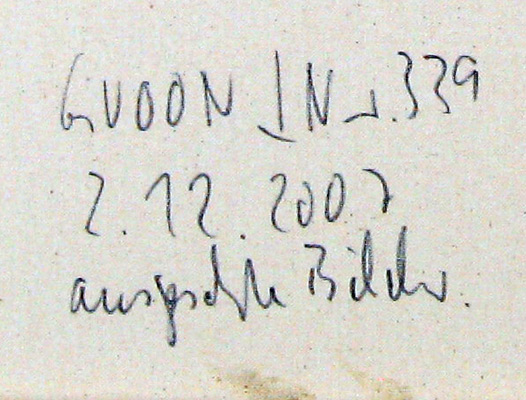 GVOON | Nr. 339
2.12.2007
ausgesuchte Bilder.